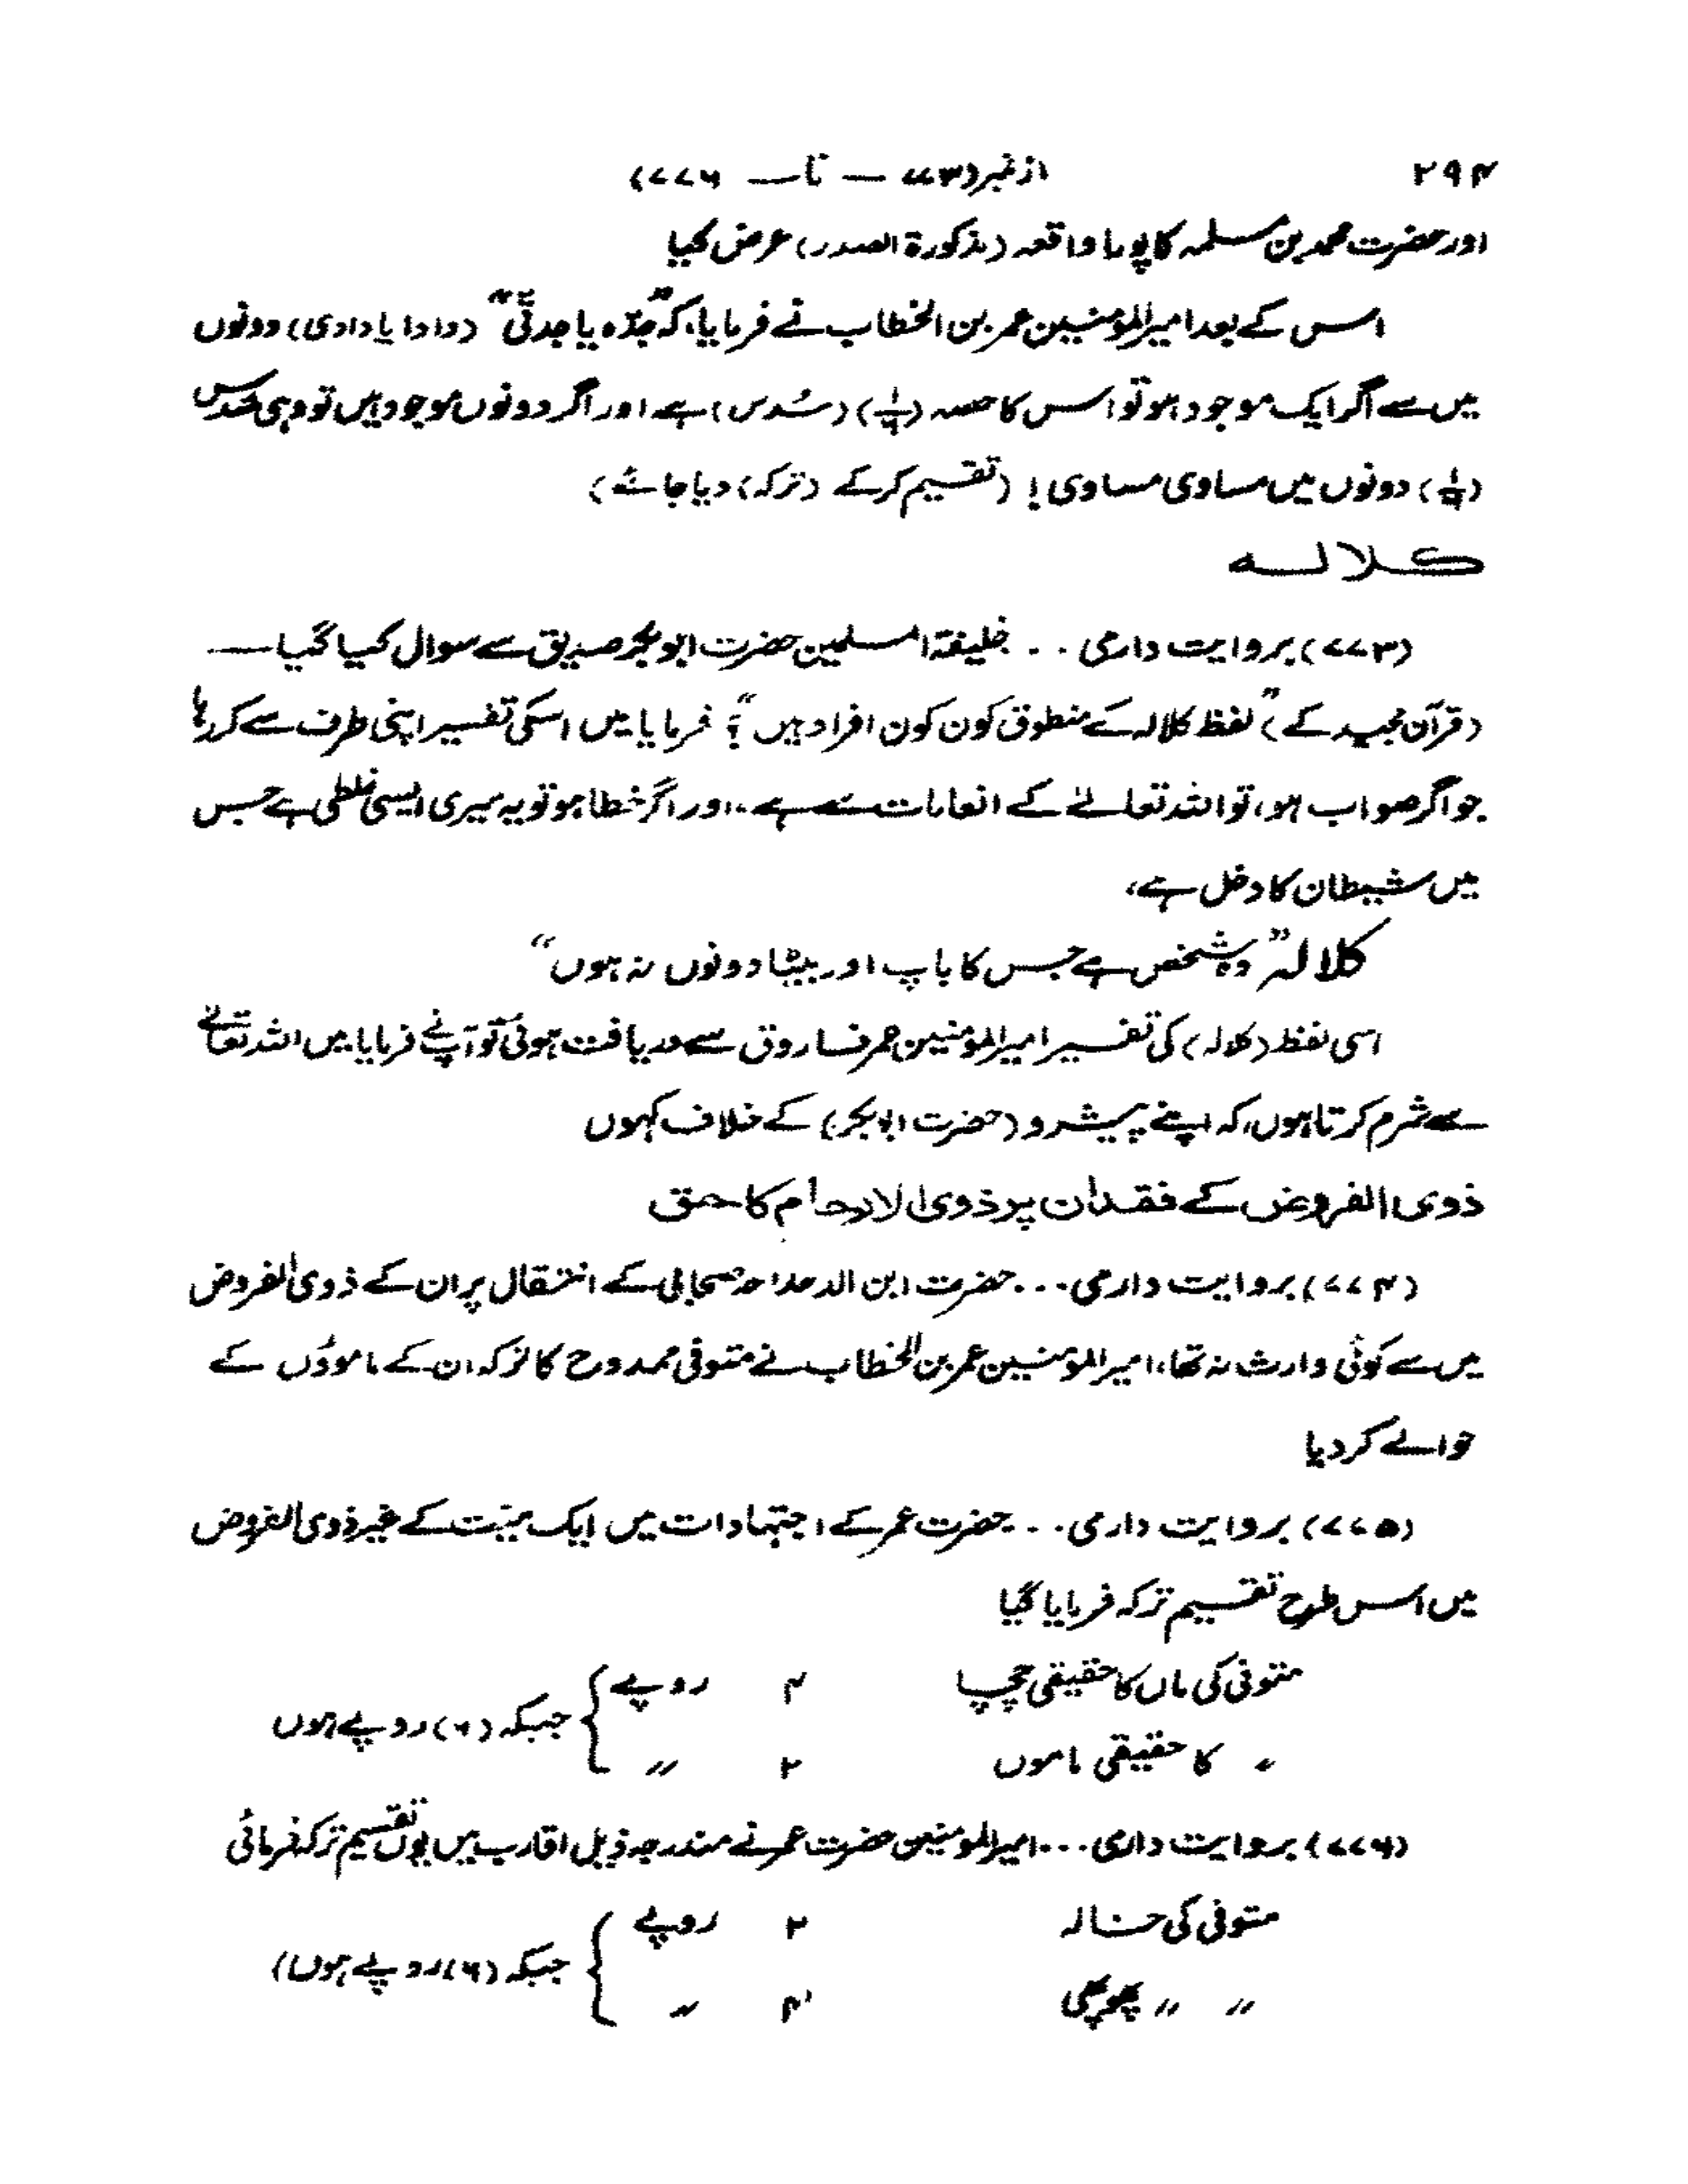 ۲۹۴ از نمبر (۷۷۳ — تا — ۷۷۶)
اور حضرت محمد بن مسلمہ کا پورا واقعہ (مذکورۃ الصدر) عرض کیا
اس کے بعد امیرالمؤمنین عمر بن الخطاب نے فرمایا، کہ "جدّہ یا جدتی" (دادا یا دادی) دونوں
میں سے اگر ایک موجود ہو تو اس کا حصہ (۱/۶) (سُدس) ہے اور اگر دونوں موجود ہیں تو وہی سُدس
(۱/۶) دونوں میں مساوی مساوی! (تقسیم کرکے (ترکہ) دیا جائے)
کلالہ
(۷۷۳) بروایت دارمی ... خلیفۃ المسلمین حضرت ابوبکر صدیق سے سوال کیا گیا —
(قرآن مجید کے) "لفظ کلالہ کے منطوق کون کون افراد ہیں"؟ فرمایا میں اسکی تفسیر اپنی طرف سے کر رہا
جو اگر صواب ہو، تو اللہ تعالےٰ کے انعامات سے ہے، اور اگر خطا ہو تو یہ میری ایسی غلطی ہے جس
میں شیطان کا دخل ہے،
کلالہ "وہ شخص ہے جس کا باپ اور بیٹا دونوں نہ ہوں"
اسی لفظ (کلالہ) کی تفسیر امیرالمؤمنین عمر فاروق سے دریافت ہوئی تو آپنے فرمایا میں اللہ تعالےٰ
سے شرم کرتا ہوں، کہ اپنے پیشرو (حضرت ابوبکر) کے خلاف کہوں
ذوی الفروض کے فقدان پر ذوی الارحام کا حق
(۷۷۴) بروایت دارمی ... حضرت ابن الدحداحہ صحابی کے انتقال پر ان کے ذوی الفروض
میں سے کوئی وارث نہ تھا، امیرالمؤمنین عمر بن الخطاب نے متوفی ممدوح کا ترکہ ان کے ماموؤں کے
حوالے کر دیا
(۷۷۵) بروایت دارمی ... حضرت عمر کے اجتہادات میں ایک میّت کے غیر ذوی الفروض
میں اس طرح تقسیم ترکہ فرمایا گیا
متوفی کی ماں کا حقیقی چچا ۴ روپے } جبکہ (۶) روپے ہوں
〃 کا حقیقی ماموں ۲ 〃
(۷۷۶) بروایت دارمی ... امیرالمومنین حضرت عمر نے مندرجہ ذیل اقارب میں یوں تقسیم ترکہ فرمائی
متوفی کی خالہ ۲ روپے } جبکہ (۶) روپے ہوں)
〃 〃 پھوپھی ۴ 〃